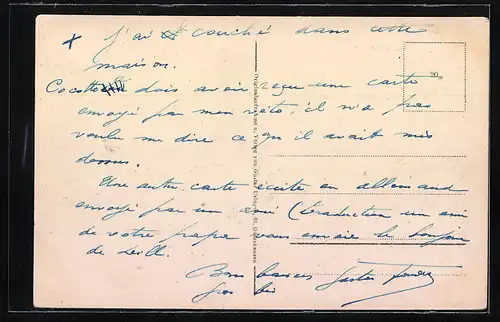 x j'ai couché dans cette
maison.
Cocotte dois avoir reçu une carte
envoyé par mon véto, il n'a pas
voulu me dire ce qu'il avait mis
dessus.
Une autre carte écrite en allemand
envoyé par un ami (traduction un ami
de votre papa vous envoies le bonjour
de
Bons baisers
Gros
20